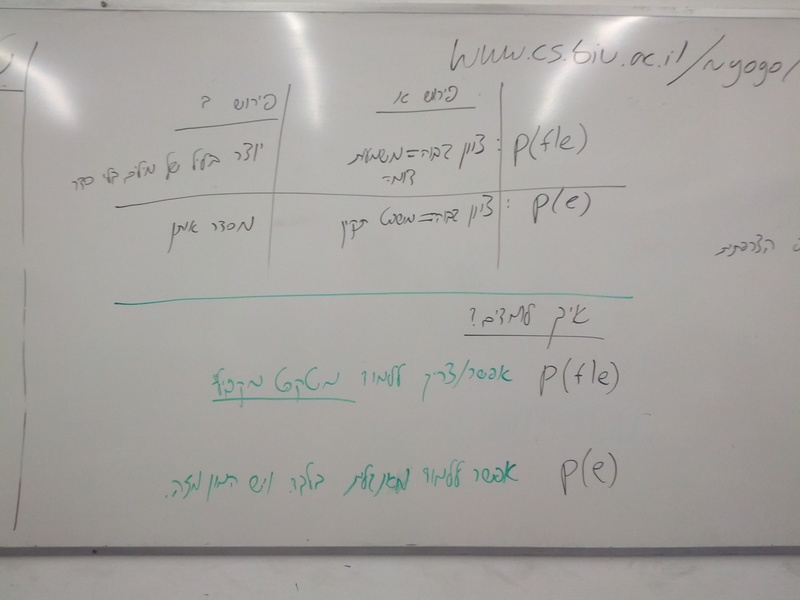 www.cs.biu.ac.il/~yogo/
פירוש א
פירוש ב
p(f|e) : ציון גבוה=משמעות דומה
יוצר בליל של מילים בלי סדר
p(e) : ציון גבוה=משפט תקין
מסדר אותן
הצרפתית
איך לומדים?
p(f|e) אפשר/צריך ללמוד מטקסט מקביל
p(e) אפשר ללמוד מאנגלית בלבד. ויש המון מזה.